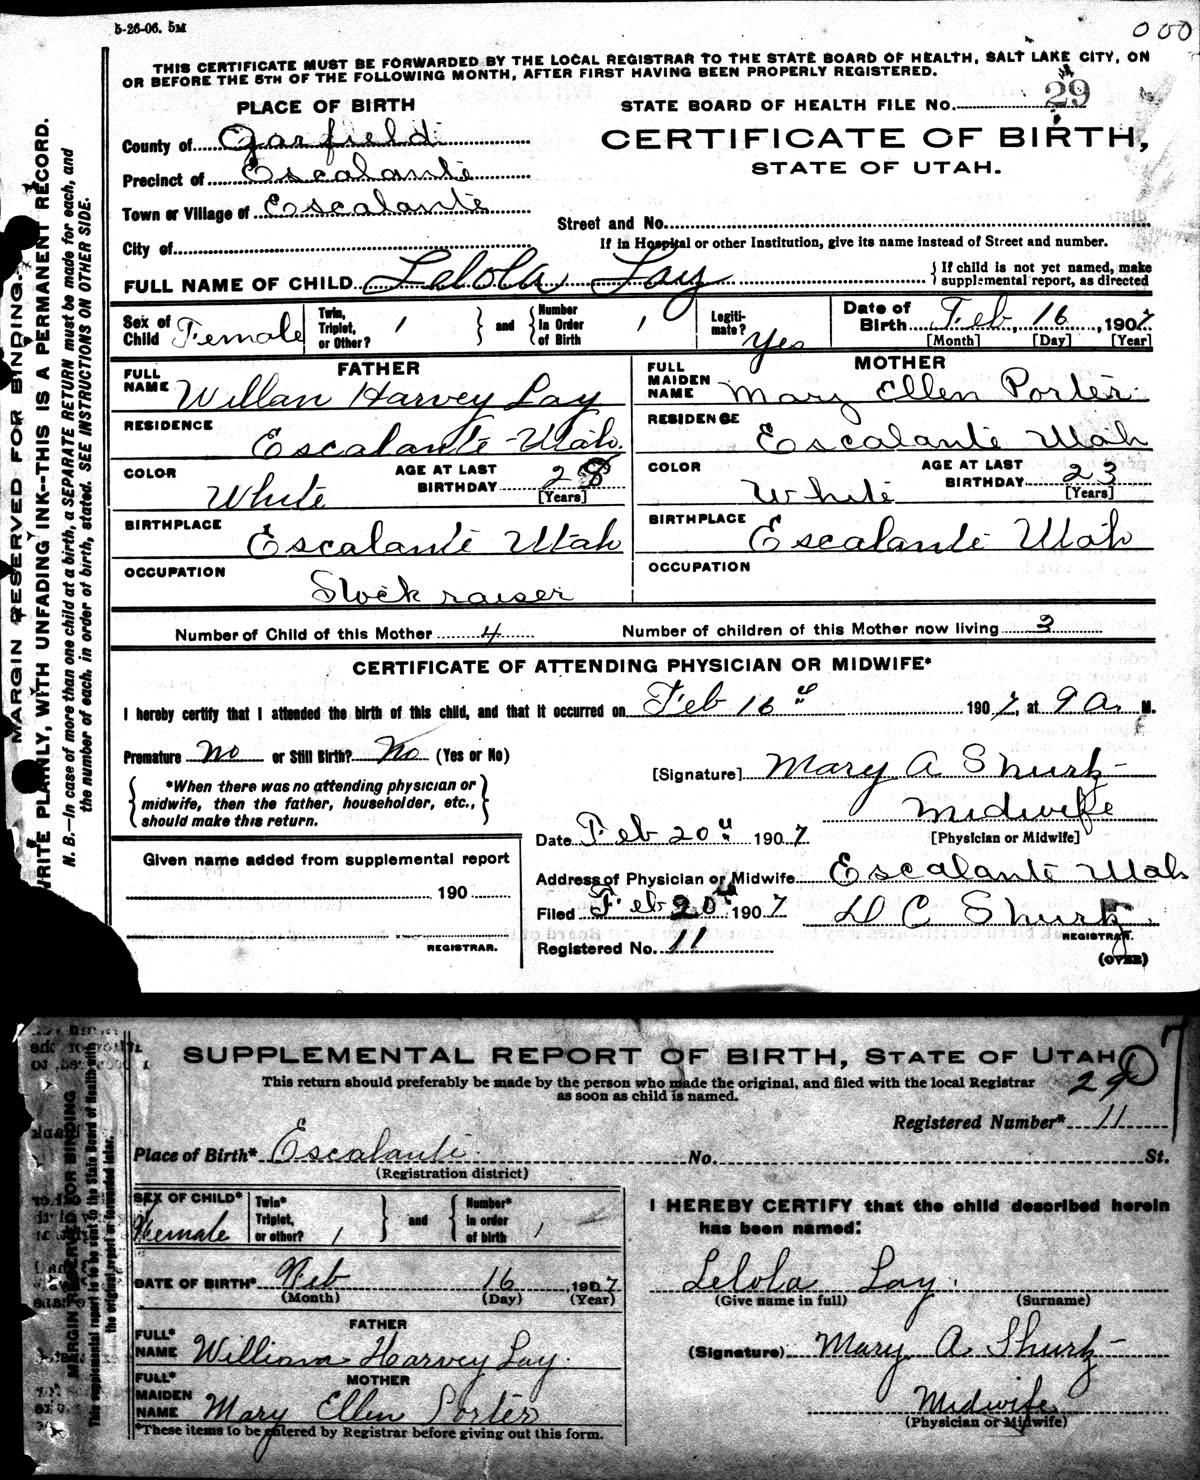 5-26-06. 5M
000
THIS CERTIFICATE MUST BE FORWARDED BY THE LOCAL REGISTRAR TO THE STATE BOARD OF HEALTH, SALT LAKE CITY, ON
OR BEFORE THE 5TH OF THE FOLLOWING MONTH, AFTER FIRST HAVING BEEN PROPERLY REGISTERED.
MARGIN RESERVED FOR BINDING.
WRITE PLAINLY, WITH UNFADING INK--THIS IS A PERMANENT RECORD.
N. B.—In case of more than one child at a birth, a SEPARATE RETURN must be made for each, and
the number of each, in order of birth, stated. SEE INSTRUCTIONS ON OTHER SIDE.
PLACE OF BIRTH
STATE BOARD OF HEALTH FILE NO. 29
County of Garfield
CERTIFICATE OF BIRTH,
Precinct of Escalante
STATE OF UTAH.
Town or Village of Escalante
Street and No.
City of
If in Hospital or other Institution, give its name instead of Street and number.
FULL NAME OF CHILD Lelola Lay { If child is not yet named, make
supplemental report, as directed
Sex of Child Female Twin, Triplet, or Other? 1 } and { Number in Order of Birth 1 Legiti- mate? Yes Date of Birth Feb, 16, 1907
[Month] [Day] [Year]
FATHER MOTHER
FULL NAME Willan Harvey Lay FULL MAIDEN NAME Mary Ellen Porter
RESIDENCE Escalante-Utah. RESIDENCE Escalante Utah
COLOR White AGE AT LAST BIRTHDAY 28 [Years] COLOR White AGE AT LAST BIRTHDAY 23 [Years]
BIRTHPLACE Escalante Utah BIRTHPLACE Escalante Utah
OCCUPATION Stock raiser OCCUPATION
Number of Child of this Mother 4 Number of children of this Mother now living 3
CERTIFICATE OF ATTENDING PHYSICIAN OR MIDWIFE*
I hereby certify that I attended the birth of this child, and that it occurred on Feb 16 1907, at 9 A. M.
Premature No or Still Birth? No (Yes or No)
[Signature] Mary A Shurtz
{ *When there was no attending physician or
midwife, then the father, householder, etc.,
should make this return. }
Midwife
Date Feb 20 1907 [Physician or Midwife]
Given name added from supplemental report
190
REGISTRAR.
Address of Physician or Midwife Escalante Utah
Filed Feb 20 1907 D C Shurtz
REGISTRAR.
Registered No. 11
(OVER)
SUPPLEMENTAL REPORT OF BIRTH, STATE OF UTAH
7
This return should preferably be made by the person who made the original, and filed with the local Registrar
as soon as child is named.
29
Registered Number* 11
MARGIN RESERVED FOR BINDING
This supplemental report is to be sent to the State Board of Health with
the original report as forwarded later.
Place of Birth* Escalante No. St.
(Registration district)
SEX OF CHILD* Female Twin* Triplet, or other? 1 } and { Number* in order of birth 1
I HEREBY CERTIFY that the child described herein
has been named:
DATE OF BIRTH* Feb 16, 1907
(Month) (Day) (Year)
Lelola Lay.
(Give name in full) (Surname)
FATHER
FULL* NAME William Harvey Lay.
(Signature) Mary A. Shurtz
MOTHER
FULL* MAIDEN NAME Mary Ellen Porter
Midwife
(Physician or Midwife)
*These items to be entered by Registrar before giving out this form.